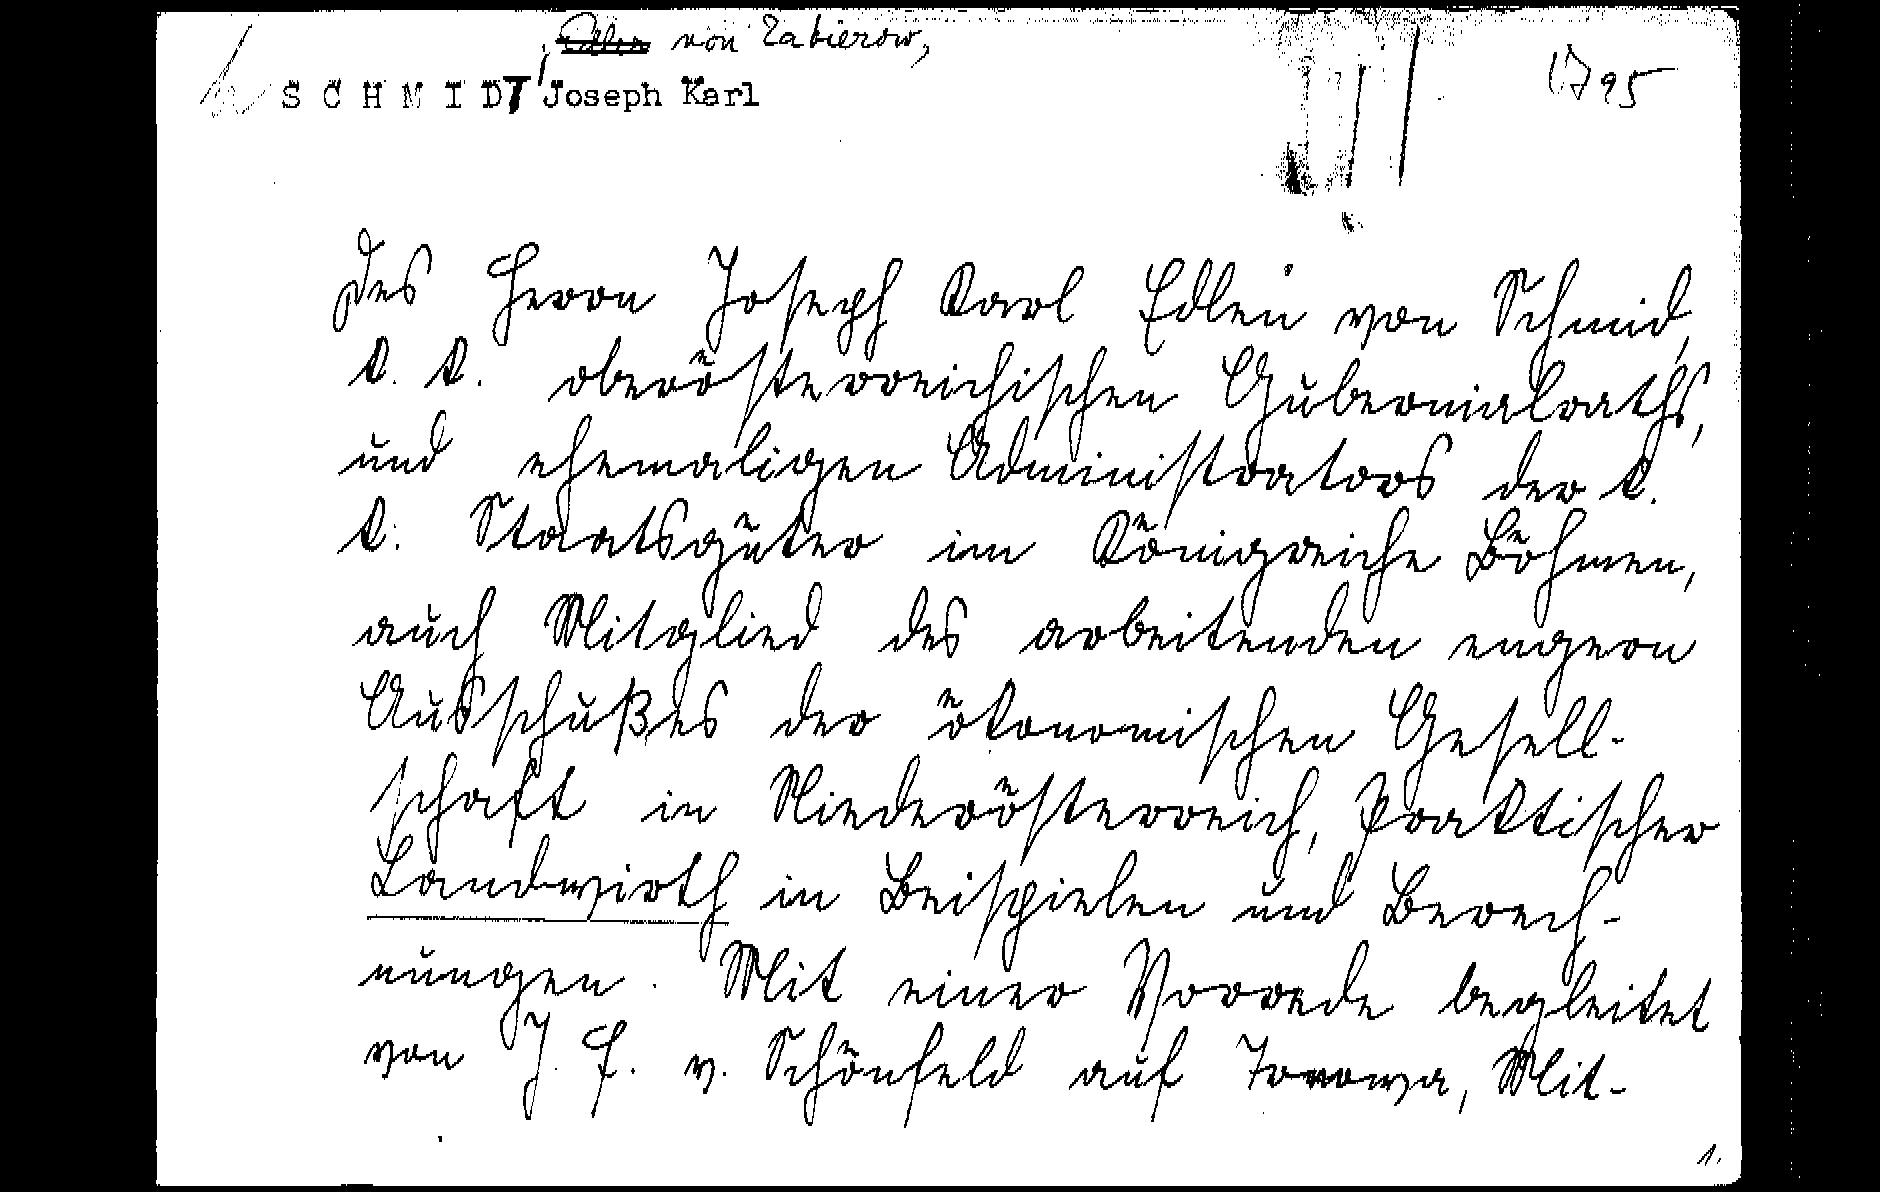 von Zabierow,
SCHMIDT, Joseph Karl
1795
Des Herrn Joseph Karl Edlen von Schmid,
k. k. oberösterreichischen Gubernialraths,
und ehemaligen Administrators der k.
k. Staatsgüter im Königreiche Böhmen,
auch Mitglied des arbeitenden engern
Ausschußes der ökonomischen Gesell-
schaft in Niederösterreich, Praktischer
Landwirth in Beispielen und Berech-
nungen. Mit einer Vorrede begleitet
von J. F. v. Schönfeld auf Mit-
1.